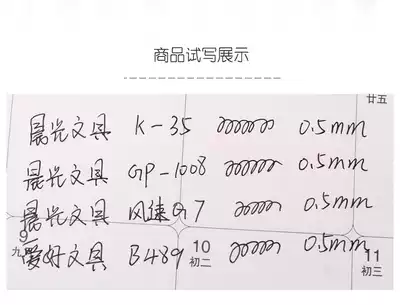 商品试写展示
廿五
晨光文具 K-35 0.5mm
晨光文具 GP-1008 0.5mm
晨光文具 风速Q7 0.5mm
9 10 11
九 初二 初三
爱好文具 B489 0.5mm